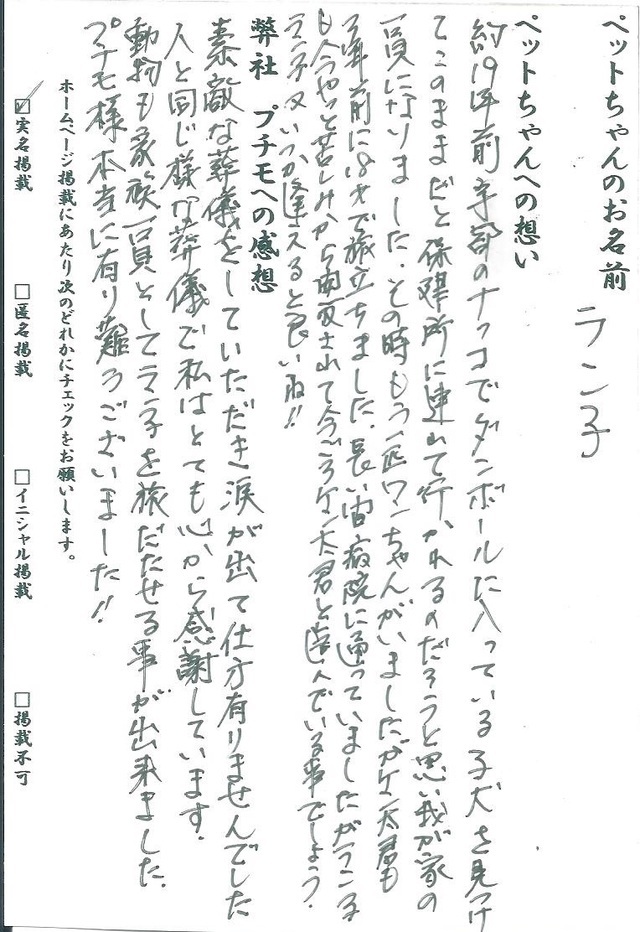 ペットちゃんのお名前
ラン子
ペットちゃんへの想い
約19年前 宇部のナフコでダンボールに入っている子犬を見つけ
てこのままだと保健所に連れて行かれるのだろうと思い我が家の
一員になりました。その時もう一匹ワンちゃんがいましたがケン太君も
年前に18才で旅立ちました。長い間病院に通っていましたがラン子
も今やっと苦しみから開放されて今ごろケン太君と遊んでいる事でしょう。
ラン子又いつか逢えると良いね!!
弊社 プチモへの感想
素敵な葬儀をしていただき涙が出て仕方有りませんでした
人と同じ様な葬儀で私はとても心から感謝しています。
動物も家族一員としてラン子を旅だたせる事が出来ました。
プチモ様本当に有り難うございました!!
ホームページ掲載にあたり次のどれかにチェックをお願いします。
☑実名掲載 □匿名掲載 □イニシャル掲載 □掲載不可